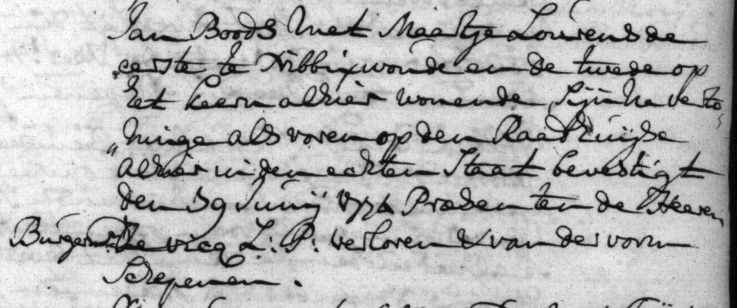 Jan Boods Met Maartje Lourens de
eerste te Nibbixwoude en de twede op
het keern alhier wonende Sijn na verto„
„ninge als voren op den Raadhuijse
alhier in den echten Staat bevestigt
den 19 Junij Præsenten de Heeren
Burgemr. De vicq L: P: verloren & van der vorm
Schepenen.